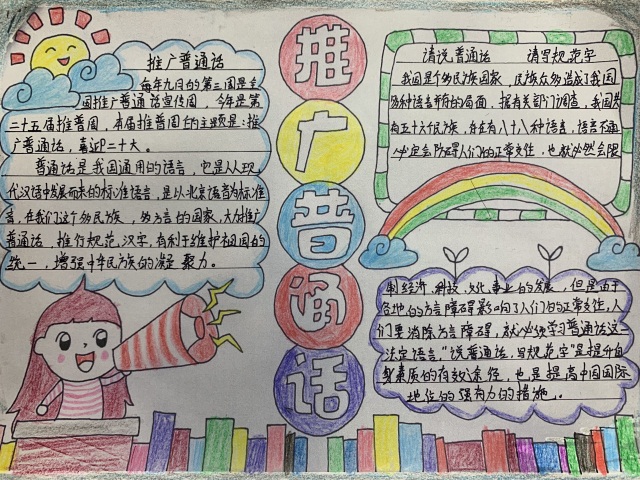 推广普通话
每年九月的第三周是全
国推广普通话宣传周，今年是第
二十五届推普周，本届推普周的主题是：推
广普通话，喜迎二十大。
普通话是我国通用的语言，它是从现
代汉语中发展而来的标准语言，是以北京语音为标准
音，在我们这个多民族，多方言的国家，大力推广
普通话，推行规范汉字，有利于维护祖国的
统一，增强中华民族的凝聚力。
推
广
普
通
话
请说普通话 请写规范字
我国是个多民族国家，民族众多造成了我国
多种语言并存的局面，据有关部门调查，我国共
有五十六个民族，存在有八十八种语言，语言不通
必定会防碍人们的正常交往，也就必然会限
制经济，科技，文化，事业的发展，但是由于
各地的方言障碍影响了人们的正常交往，人
们要消除方言障碍，就必须学习普通话这一
法定语言，“说普通话，写规范字”是提升自
身素质的有效途径，也是提高中国国际
地位的强有力的措施。